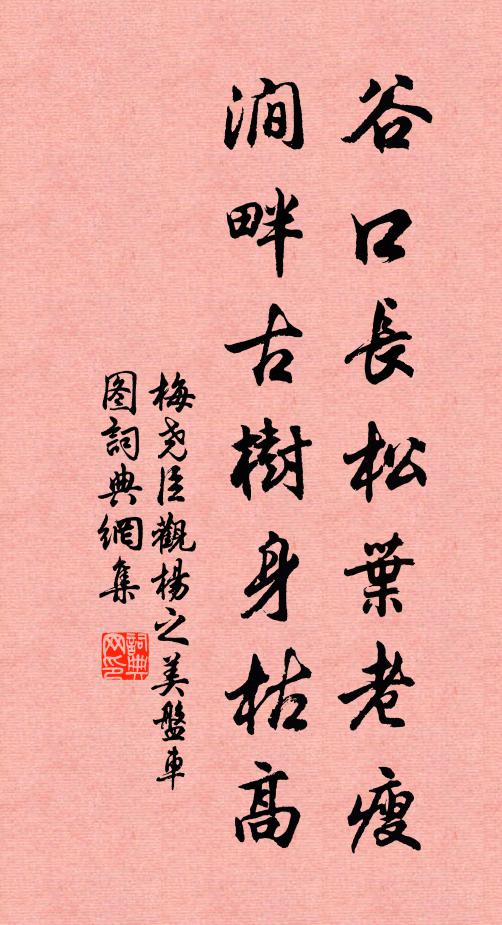 谷口長松葉老瘦
澗畔古樹身枯高
梅堯臣觀楊之美盤車
图詞典網集
詞典网印